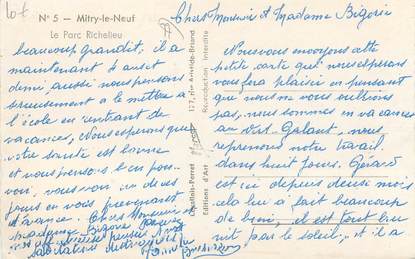 Nº 5 — Mitry-le-Neuf
Le Parc Richelieu
Chers Monsieur et Madame Bigorie
Nous vous envoyons cette
petite carte que nous espérons
vous fera plaisir en pensant
que nous ne vous oublions
pas, nous sommes en vacances
au Vert Galant, nous
reprenons notre travail
dans huit jours. Gérard
est ici depuis deux mois
cela lui a fait beaucoup
de bien, il est tout
par le soleil, et il a
beaucoup grandit, il a
maintenant 4 ans et
demi aussi nous pensons
à le mettre à
l'école en rentrant de
vacances, Nous espérons que
votre santé est bonne
et nous pensons
vous voir un de ces
jours en vous prévenant
d'avance. Chers Monsieur
Madame Bigorie
salutations
127, Av. Aristide-Briand
Editions d'Art
Reproduction Interdite